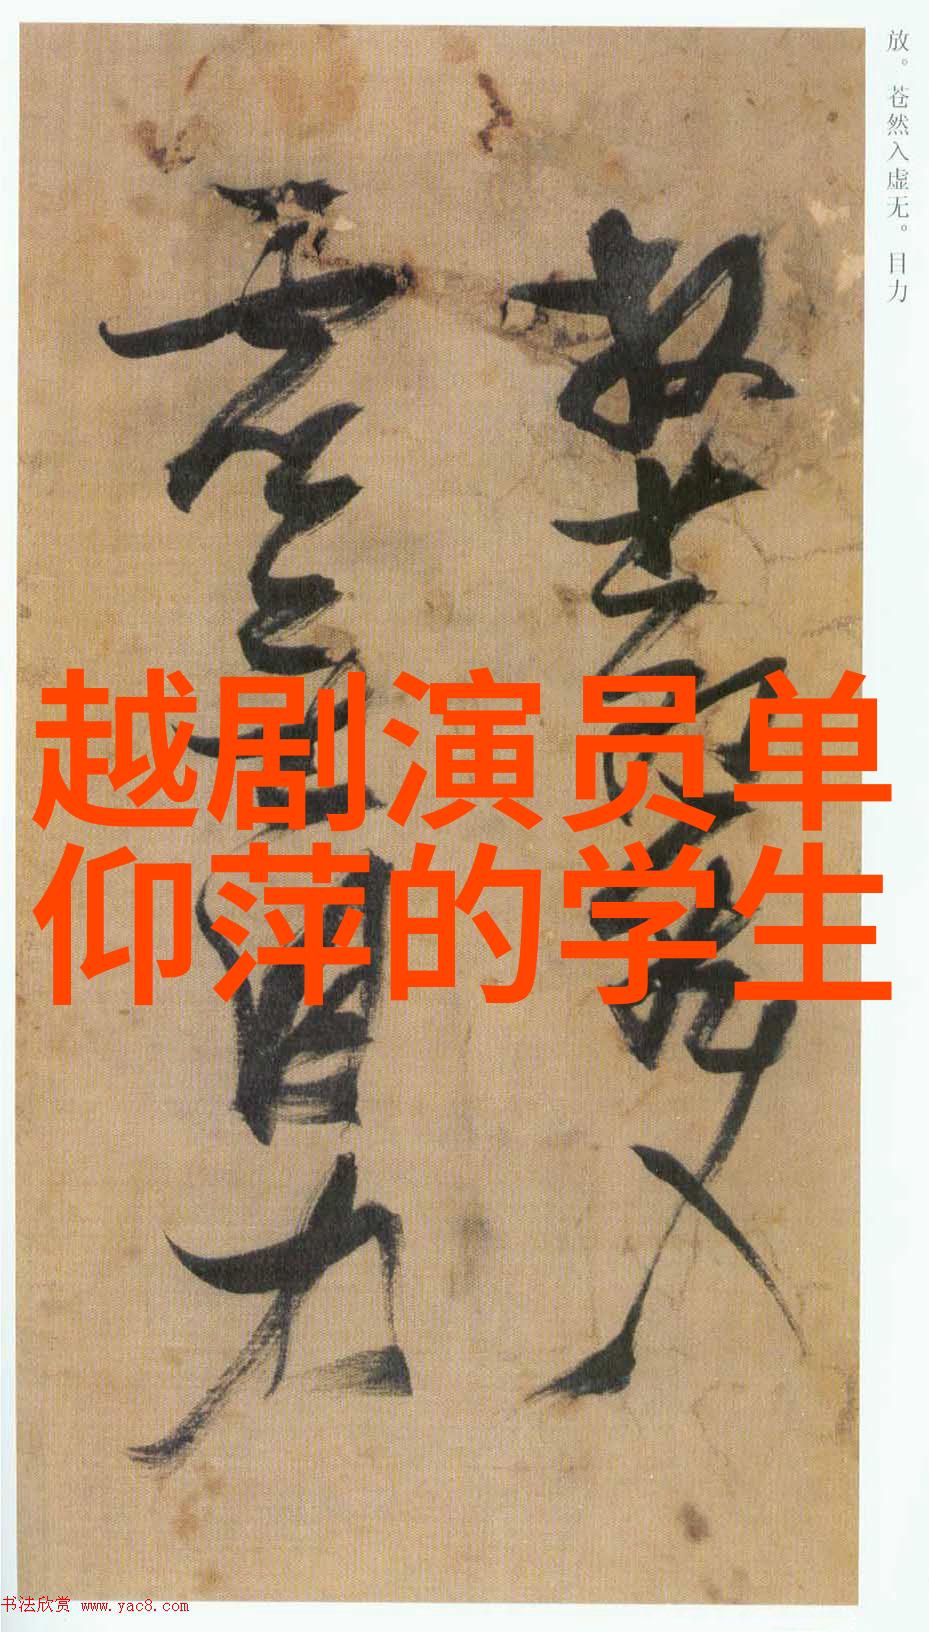 放。苍然入虚无。目力
放苍然入
虚无目力
越剧演员单
仰萍的学生
书法欣赏 www.yac8.com